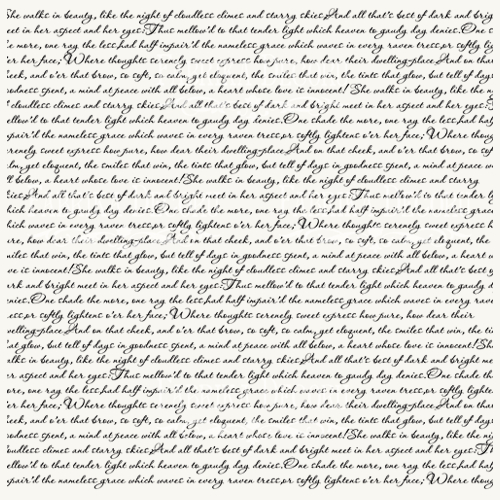 She walks in beauty, like the night of cloudless climes and starry skies; And all that's best of dark and brig
eet in her aspect and her eyes: Thus mellow'd to that tender light which heaven to gaudy day denies. One s
e more, one ray the less, had half impair'd the nameless grace which waves in every raven tress, or softly lig
er her face; Where thoughts serenely sweet express how pure, how dear their dwelling-place. And on that
eek, and o'er that brow, so soft, so calm, yet eloquent, the smiles that win, the tints that glow, but tell of days
oodness spent, a mind at peace with all below, a heart whose love is innocent! She walks in beauty, like the n
f cloudless climes and starry skies; And all that's best of dark and bright meet in her aspect and her eyes:
ellow'd to that tender light which heaven to gaudy day denies. One shade the more, one ray the less, had half
mpair'd the nameless grace which waves in every raven tress, or softly lightens o'er her face; Where thoug
erenely sweet express how pure, how dear their dwelling-place. And on that cheek, and o'er that brow, so soft, so
alm, yet eloquent, the smiles that win, the tints that glow, but tell of days in goodness spent, a mind at peace wi
ll below, a heart whose love is innocent! She walks in beauty, like the night of cloudless climes and starry
kies; And all that's best of dark and bright meet in her aspect and her eyes: Thus mellow'd to that tender li
hich heaven to gaudy day denies. One shade the more, one ray the less, had half impair'd the nameless grace
hich waves in every raven tress, or softly lightens o'er her face; Where thoughts serenely sweet express h
ure, how dear their dwelling-place. And on that cheek, and o'er that brow, so soft, so calm, yet eloquent, the
miles that win, the tints that glow, but tell of days in goodness spent, a mind at peace with all below, a heart w
ve is innocent! She walks in beauty, like the night of cloudless climes and starry skies; And all that's best o
ark and bright meet in her aspect and her eyes: Thus mellow'd to that tender light which heaven to gaudy d
enies. One shade the more, one ray the less, had half impair'd the nameless grace which waves in every raven
ess, or softly lightens o'er her face; Where thoughts serenely sweet express how pure, how dear their
welling-place. And on that cheek, and o'er that brow, so soft, so calm, yet eloquent, the smiles that win, the tin
at glow, but tell of days in goodness spent, a mind at peace with all below, a heart whose love is innocent! Sh
alks in beauty, like the night of cloudless climes and starry skies; And all that's best of dark and bright me
er aspect and her eyes: Thus mellow'd to that tender light which heaven to gaudy day denies. One shade th
ore, one ray the less, had half impair'd the nameless grace which waves in every raven tress, or softly lighten
er her face; Where thoughts serenely sweet express how pure, how dear their dwelling-place. And on that
eek, and o'er that brow, so soft, so calm, yet eloquent, the smiles that win, the tints that glow, but tell of days
oodness spent, a mind at peace with all below, a heart whose love is innocent! She walks in beauty, like the nig
oudless climes and starry skies; And all that's best of dark and bright meet in her aspect and her eyes: T
ellow'd to that tender light which heaven to gaudy day denies. One shade the more, one ray the less, had half
mpair'd the nameless grace which waves in every raven tress, or softly lightens o'er her face; Where thoug